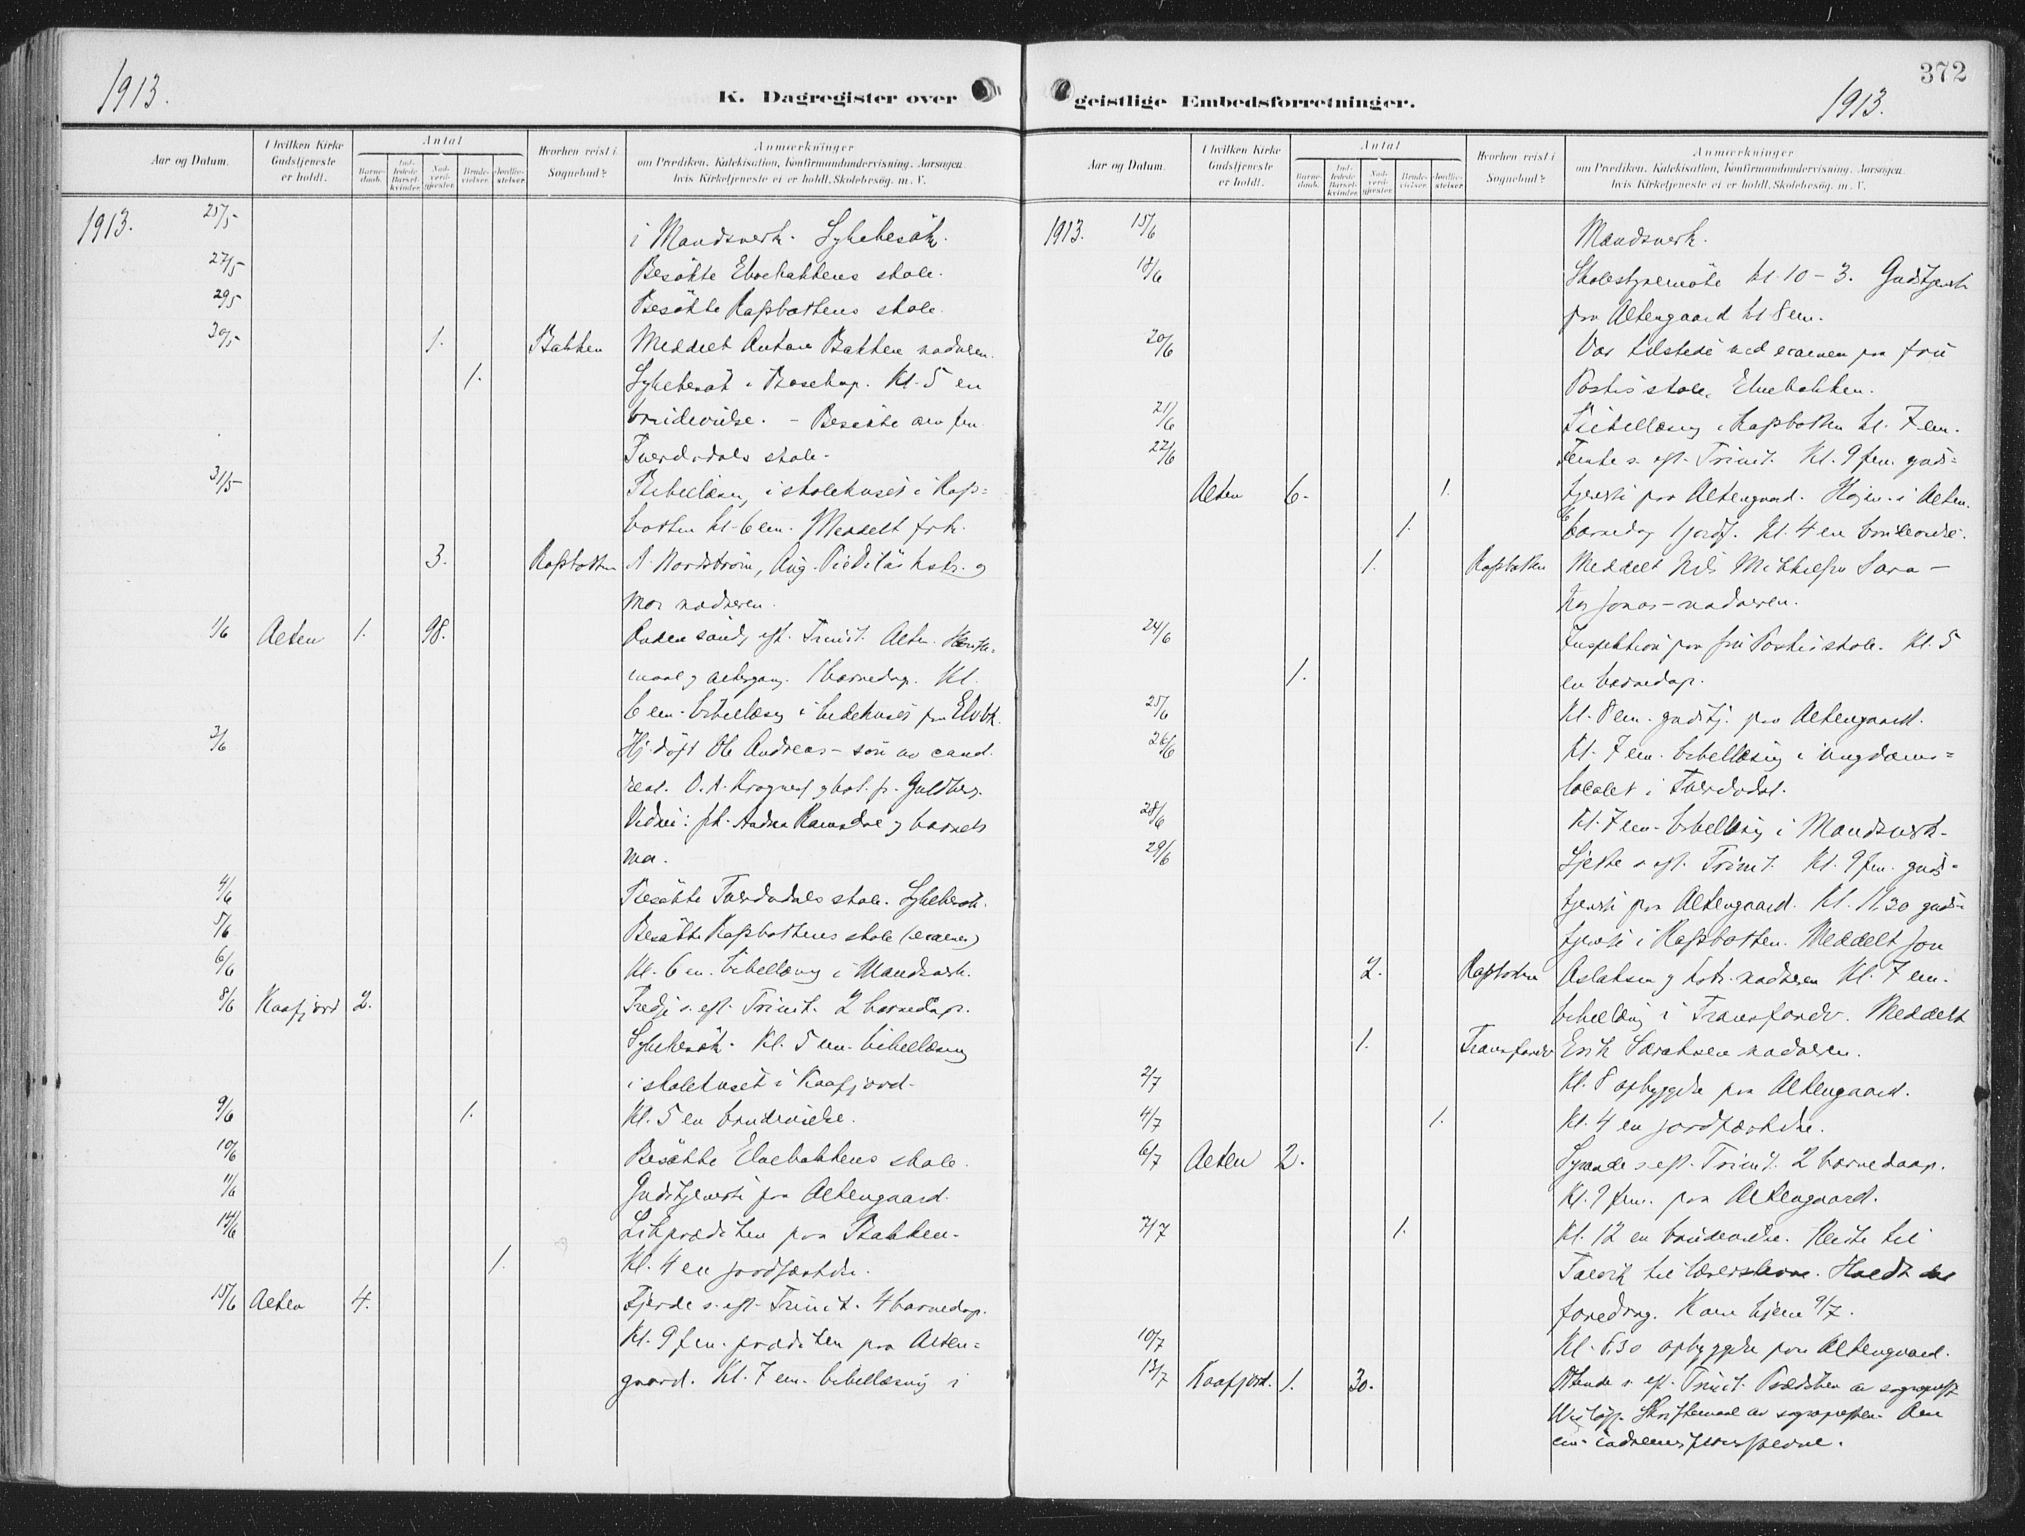 1913.
K. Dagregister over
Aar og Datum.
I hvilken Kirke Gudstjeneste er holdt.
Antal
Barne-daab.
Ind-ledede Barsel-kvinder.
Nad-verd-gjester.
Brude-vielser.
Jordfæs-telser.
Hvorhen reist i Sognebud?
Anmærkninger
om Prædiken, Katekisation, Konfirmandundervisning, Aarsagen
hvis Kirketjeneste ei er holdt, Skolebesøg, m. V.
1913. 25/5 i Mandsverk. Sykebesøk.
27/5 Besøkte Elvebakkens skole.
29/5 Besøkte Rafsbottens skole.
30/5 1. Bakken Meddelt Anton Bakken nadveren.
1. Sykebesøk i Bosekop. Kl. 5 en
brudevielse. - Besøkte
Tverdalens skole.
31/5 Bibellæsning i skolehuset i Rafs=
botten kl. 6 em. Meddelt frk.
3. Rafsbotten A. Nordstrøm, Aug. hstr. og
mor nadveren.
1/6 Alten 1. 98. Anden sønd. eft. Trinit. Alten. Skrifte-
maal og altergang. 1 barnedap. Kl.
6 em. bibellæsning i bedehuset paa Elvbk.
3/6 Hj.døpt Ole Andreas - søn av cand.
real. O. A. og hst. f. Guldberg.
Vidner: frk. Andrea og barnets
mor.
4/6 Besøkte Tverdalens skole. Sykebesøk.
5/6 Besøkte Rafsbottens skole (examen)
6/6 Kl. 6 em. bibellæsning i Mandsverk.
8/6 Kaafjord 2. Tredje s. eft. Trinit. 2 barnedap.
Sykebesøk. Kl. 5 em. bibellæsning
i skolehuset i Kaafjord.
9/6 1. Kl. 5 en brudevielse.
10/6 Besøkte Elvebakkens skole.
11/6 Gudstjeneste paa Altengaard.
14/6 Likprædiken paa Bakken.
1. Kl. 4 en jordfæstelse.
15/6 Alten 4. Fjerde s. eft. Trinit. 4 barnedap.
Kl. 9 fm. prædiken paa Alten-
gaard. Kl. 7 em. bibellæsning i
372
geistlige Embedsforretninger.
1913.
Aar og Datum.
I hvilken Kirke Gudstjeneste er holdt.
Antal
Barne-daab.
Ind-ledede Barsel-kvinder.
Nad-verd-gjester.
Brude-vielser.
Jordfæs-telser.
Hvorhen reist i Sognebud?
Anmærkninger
om Prædiken, Katekisation, Konfirmandundervisning, Aarsagen
hvis Kirketjeneste ei er holdt, Skolebesøg, m. V.
1913. 15/6 Mandsverk.
18/6 Skolestyremøte kl. 10 - 3. Gudstjeneste
paa Altengaard kl 8 em.
20/6 Var tilstede ved examen paa fru
Postis skole, Elvebakken.
21/6 Bibellæsning i Rafsbotten kl. 7 em.
22/6 Femte s. eft. Trinit. Kl. 9 fm. guds=
Alten 6. 1. tjeneste paa Altengaard. Høim. i Alten.
1. 6 barnedap 1 jordf. Kl. 4 en brudevielse.
1. Rafsbotten Meddelt Nils Mikkelsen Sara -
Jonas - nadveren.
24/6 Inspektion paa fru Postis skole. Kl. 5
1. en barnedap.
25/6 Kl. 8 em. gudstj. paa Altengaard.
26/6 Kl. 7 em. bibellæsning i ungdoms=
lokalet i Tverdal.
28/6 Kl. 7 em. bibellæsning i Mandsverk.
29/6 Sjette s. eft. Trinit. Kl. 9 fm. guds-
tjeneste paa Altengaard. Kl. 11.30 guds-
tjeneste i Rafsbotten. Meddelt Jon
2. Rafsbotten Aslaksen og hstr. nadveren Kl. 7 em.
bibellæsning i Transfarelv. Meddelt
1. Transfarelv Erik Saraksen nadveren.
2/7 Kl. 8 opbyggelse paa Altengaard.
4/7 1. Kl. 4 en jordfæstelse.
6/7 Alten 2. Syvende s. eft. Trinit. 2 barnedaap.
Kl. 9 fm. paa Altengaard.
7/7 1. Kl. 12 en brudevielse. Reiste til
Talvik til Holdt
foredrag. Kom hjem 9/7.
10/7 Kl. 6.30 opbyggelse paa Altengaard.
13/7 Kaafjord. 1. 30. Ottende s. eft. Trinit. Prædiken av sogneprest
Wisløff. Skriftemaal av sognepresten.